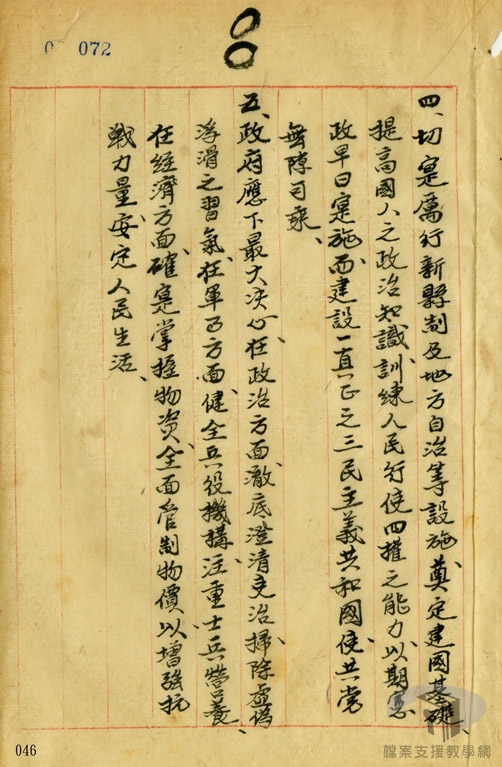 072
四、切寔厲行新縣制及地方自治等設施、奠定建國基礎、
提高國人之政治知識、訓練人民行使四權之能力、以期憲
政早日寔施、而建設一真正之三民主義共和國、使共黨
無隙可乘、
五、政府應下最大决心、在政治方面、澈底澄清吏治、掃除虛偽
浮滑之習氣、在軍事方面、健全兵役機構、注重士兵營養、
在經濟方面、確寔掌握物資、全面管制物價、以增強抗
戰力量、安定人民生活、
046
檔案支援教學網